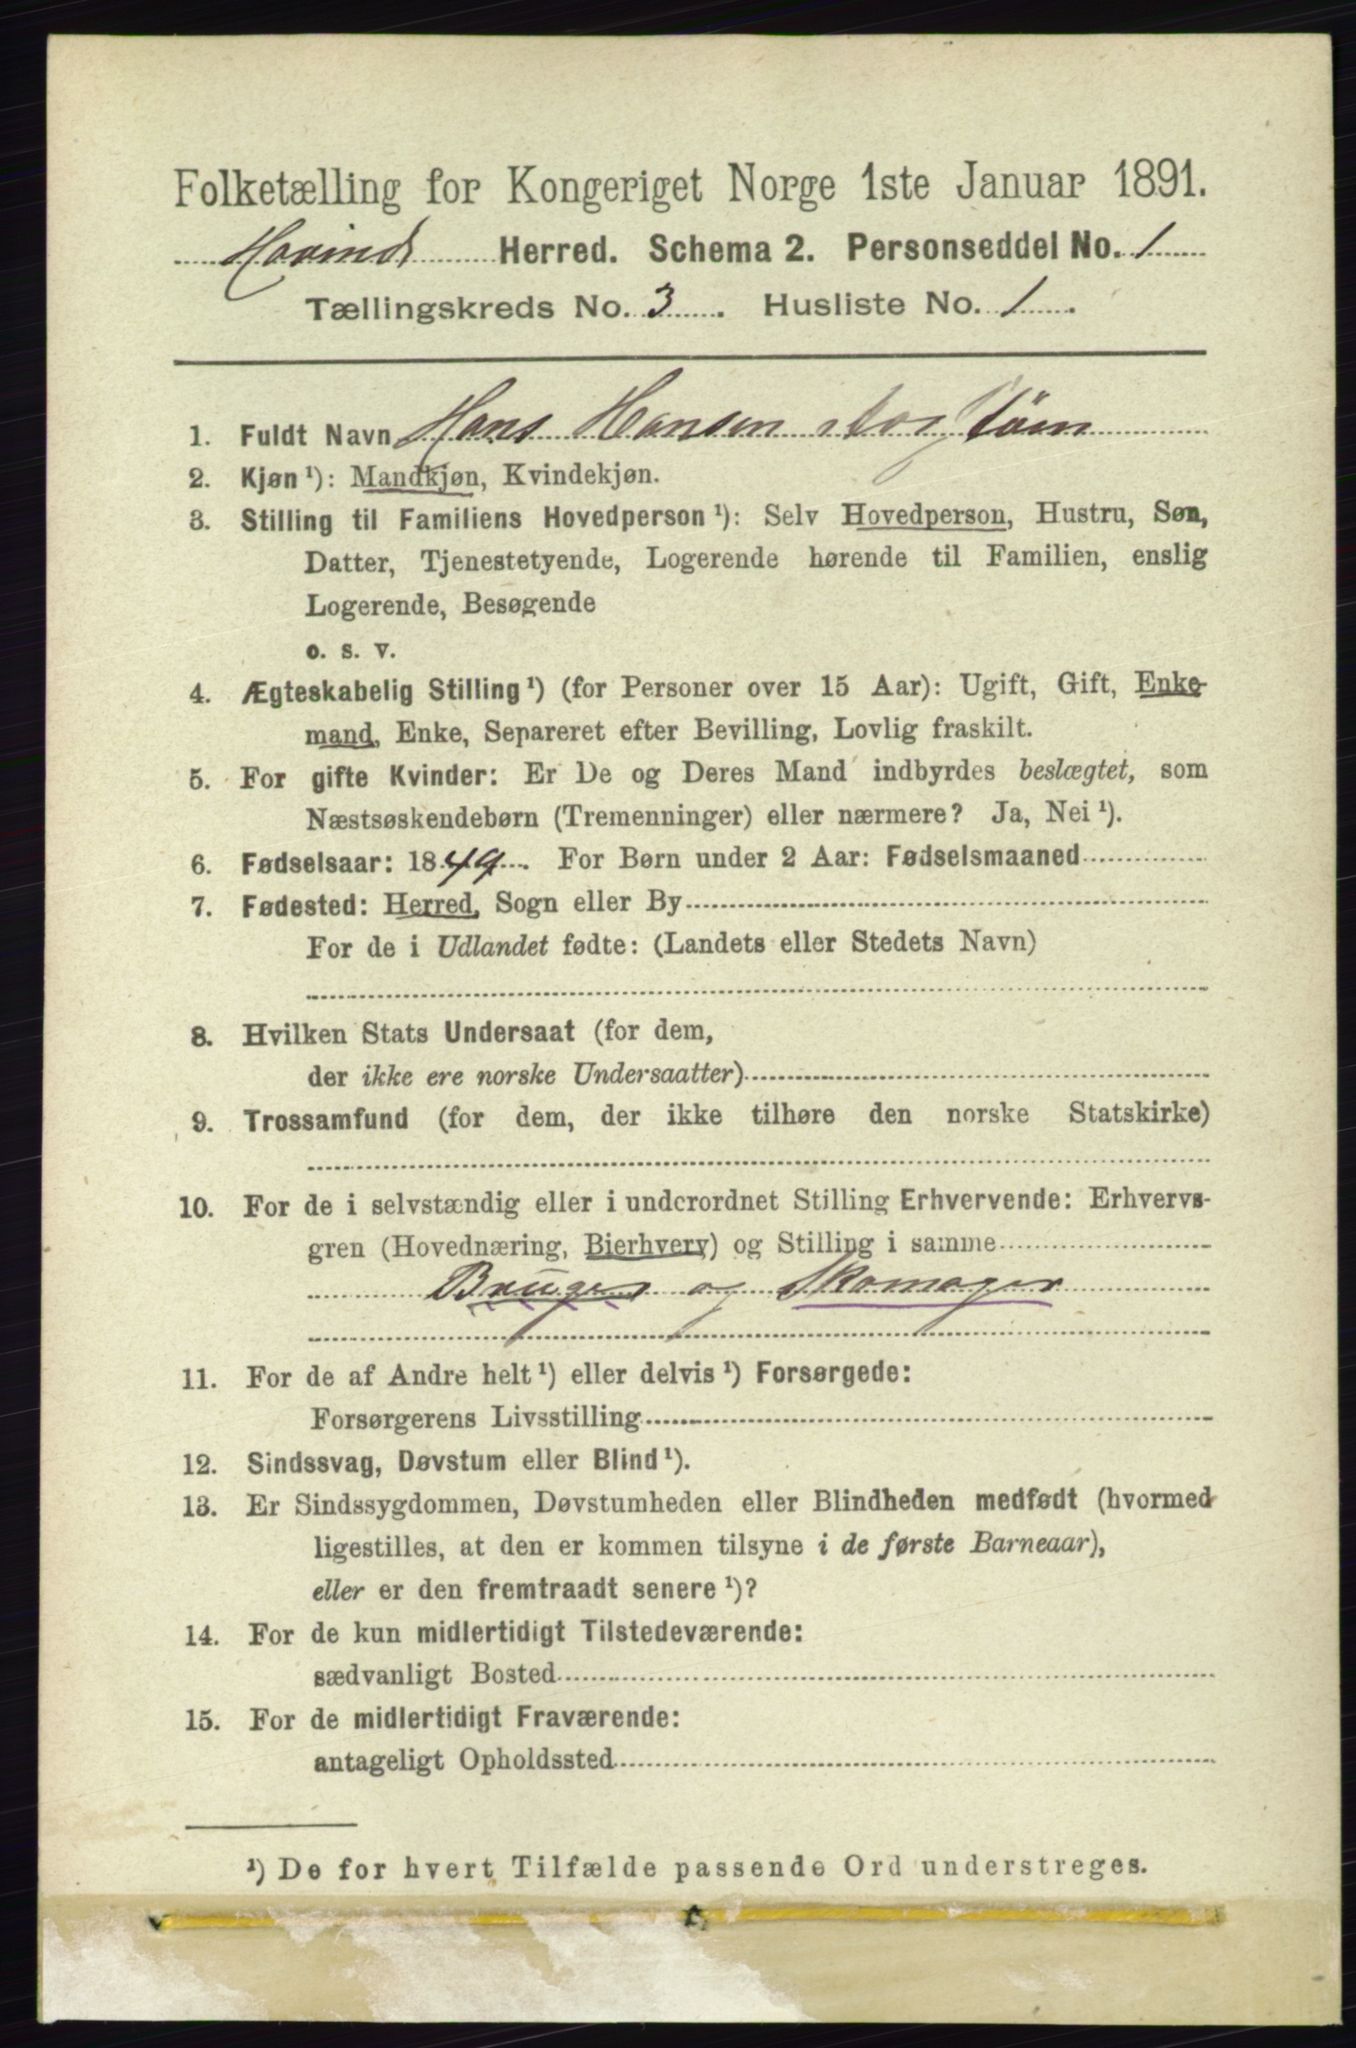 Folketælling for Kongeriget Norge 1ste Januar 1891.
Hovind Herred. Schema 2. Personseddel No. 1
Tællingskreds No. 3. Husliste No. 1.
1. Fuldt Navn Hans Hansen
2. Kjøn ¹): Mandkjøn, Kvindekjøn.
3. Stilling til Familiens Hovedperson ¹): Selv Hovedperson, Hustru, Søn,
Datter, Tjenestetyende, Logerende hørende til Familien, enslig
Logerende, Besøgende
o. s. v.
4. Ægteskabelig Stilling ¹) (for Personer over 15 Aar): Ugift, Gift, Enke-
mand, Enke, Separeret efter Bevilling, Lovlig fraskilt.
5. For gifte Kvinder: Er De og Deres Mand indbyrdes beslægtet, som
Næstsøskendebørn (Tremenninger) eller nærmere? Ja, Nei ¹).
6. Fødselsaar: 1849. For Børn under 2 Aar: Fødselsmaaned
7. Fødested: Herred, Sogn eller By
For de i Udlandet fødte: (Landets eller Stedets Navn)
8. Hvilken Stats Undersaat (for dem,
der ikke ere norske Undersaatter)
9. Trossamfund (for dem, der ikke tilhøre den norske Statskirke)
10. For de i selvstændig eller i underordnet Stilling Erhvervende: Erhvervs-
gren (Hovednæring, Bierhverv) og Stilling i samme
Bruger og Skomager
11. For de af Andre helt ¹) eller delvis ¹) Forsørgede:
Forsørgerens Livsstilling
12. Sindssvag, Døvstum eller Blind ¹).
13. Er Sindssygdommen, Døvstumheden eller Blindheden medfødt (hvormed
ligestilles, at den er kommen tilsyne i de første Barneaar),
eller er den fremtraadt senere ¹)?
14. For de kun midlertidigt Tilstedeværende:
sædvanligt Bosted
15. For de midlertidigt Fraværende:
antageligt Opholdssted
¹) De for hvert Tilfælde passende Ord understreges.